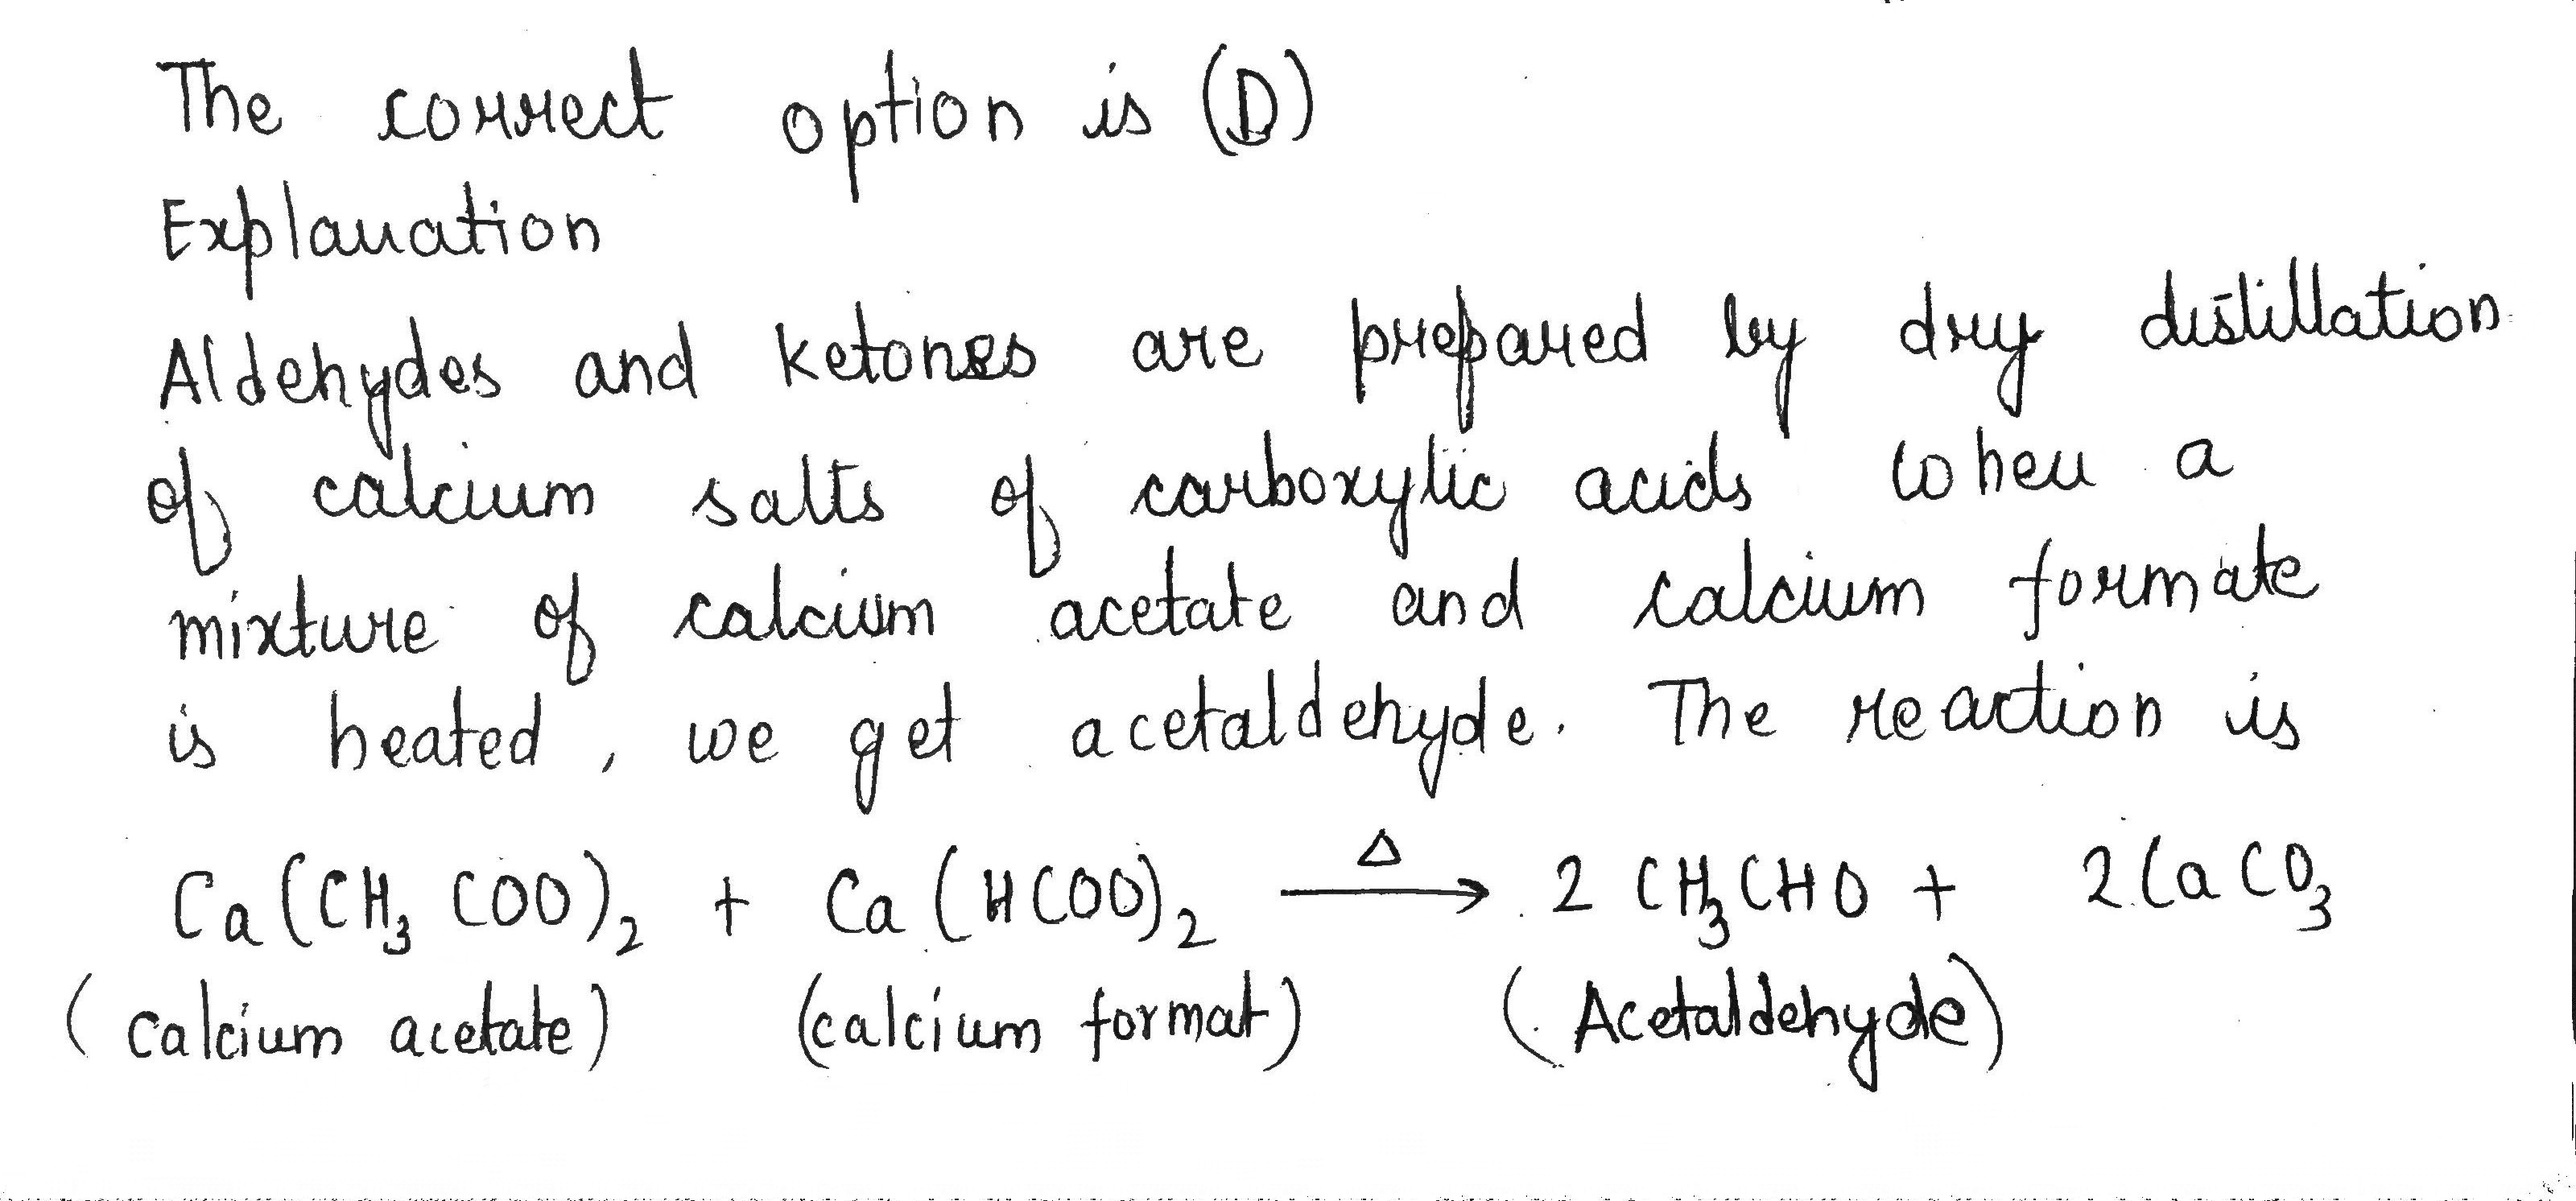 The correct option is (D)
Explanation
Aldehydes and ketones are prepared by dry distillation
of calcium salts of carboxylic acids when a
mixture of calcium acetate and calcium formate
is heated, we get acetaldehyde. The reaction is
Ca(CH₃COO)₂ + Ca(HCOO)₂ —Δ→ 2CH₃CHO + 2CaCO₃
(calcium acetate) (calcium format) (Acetaldehyde)